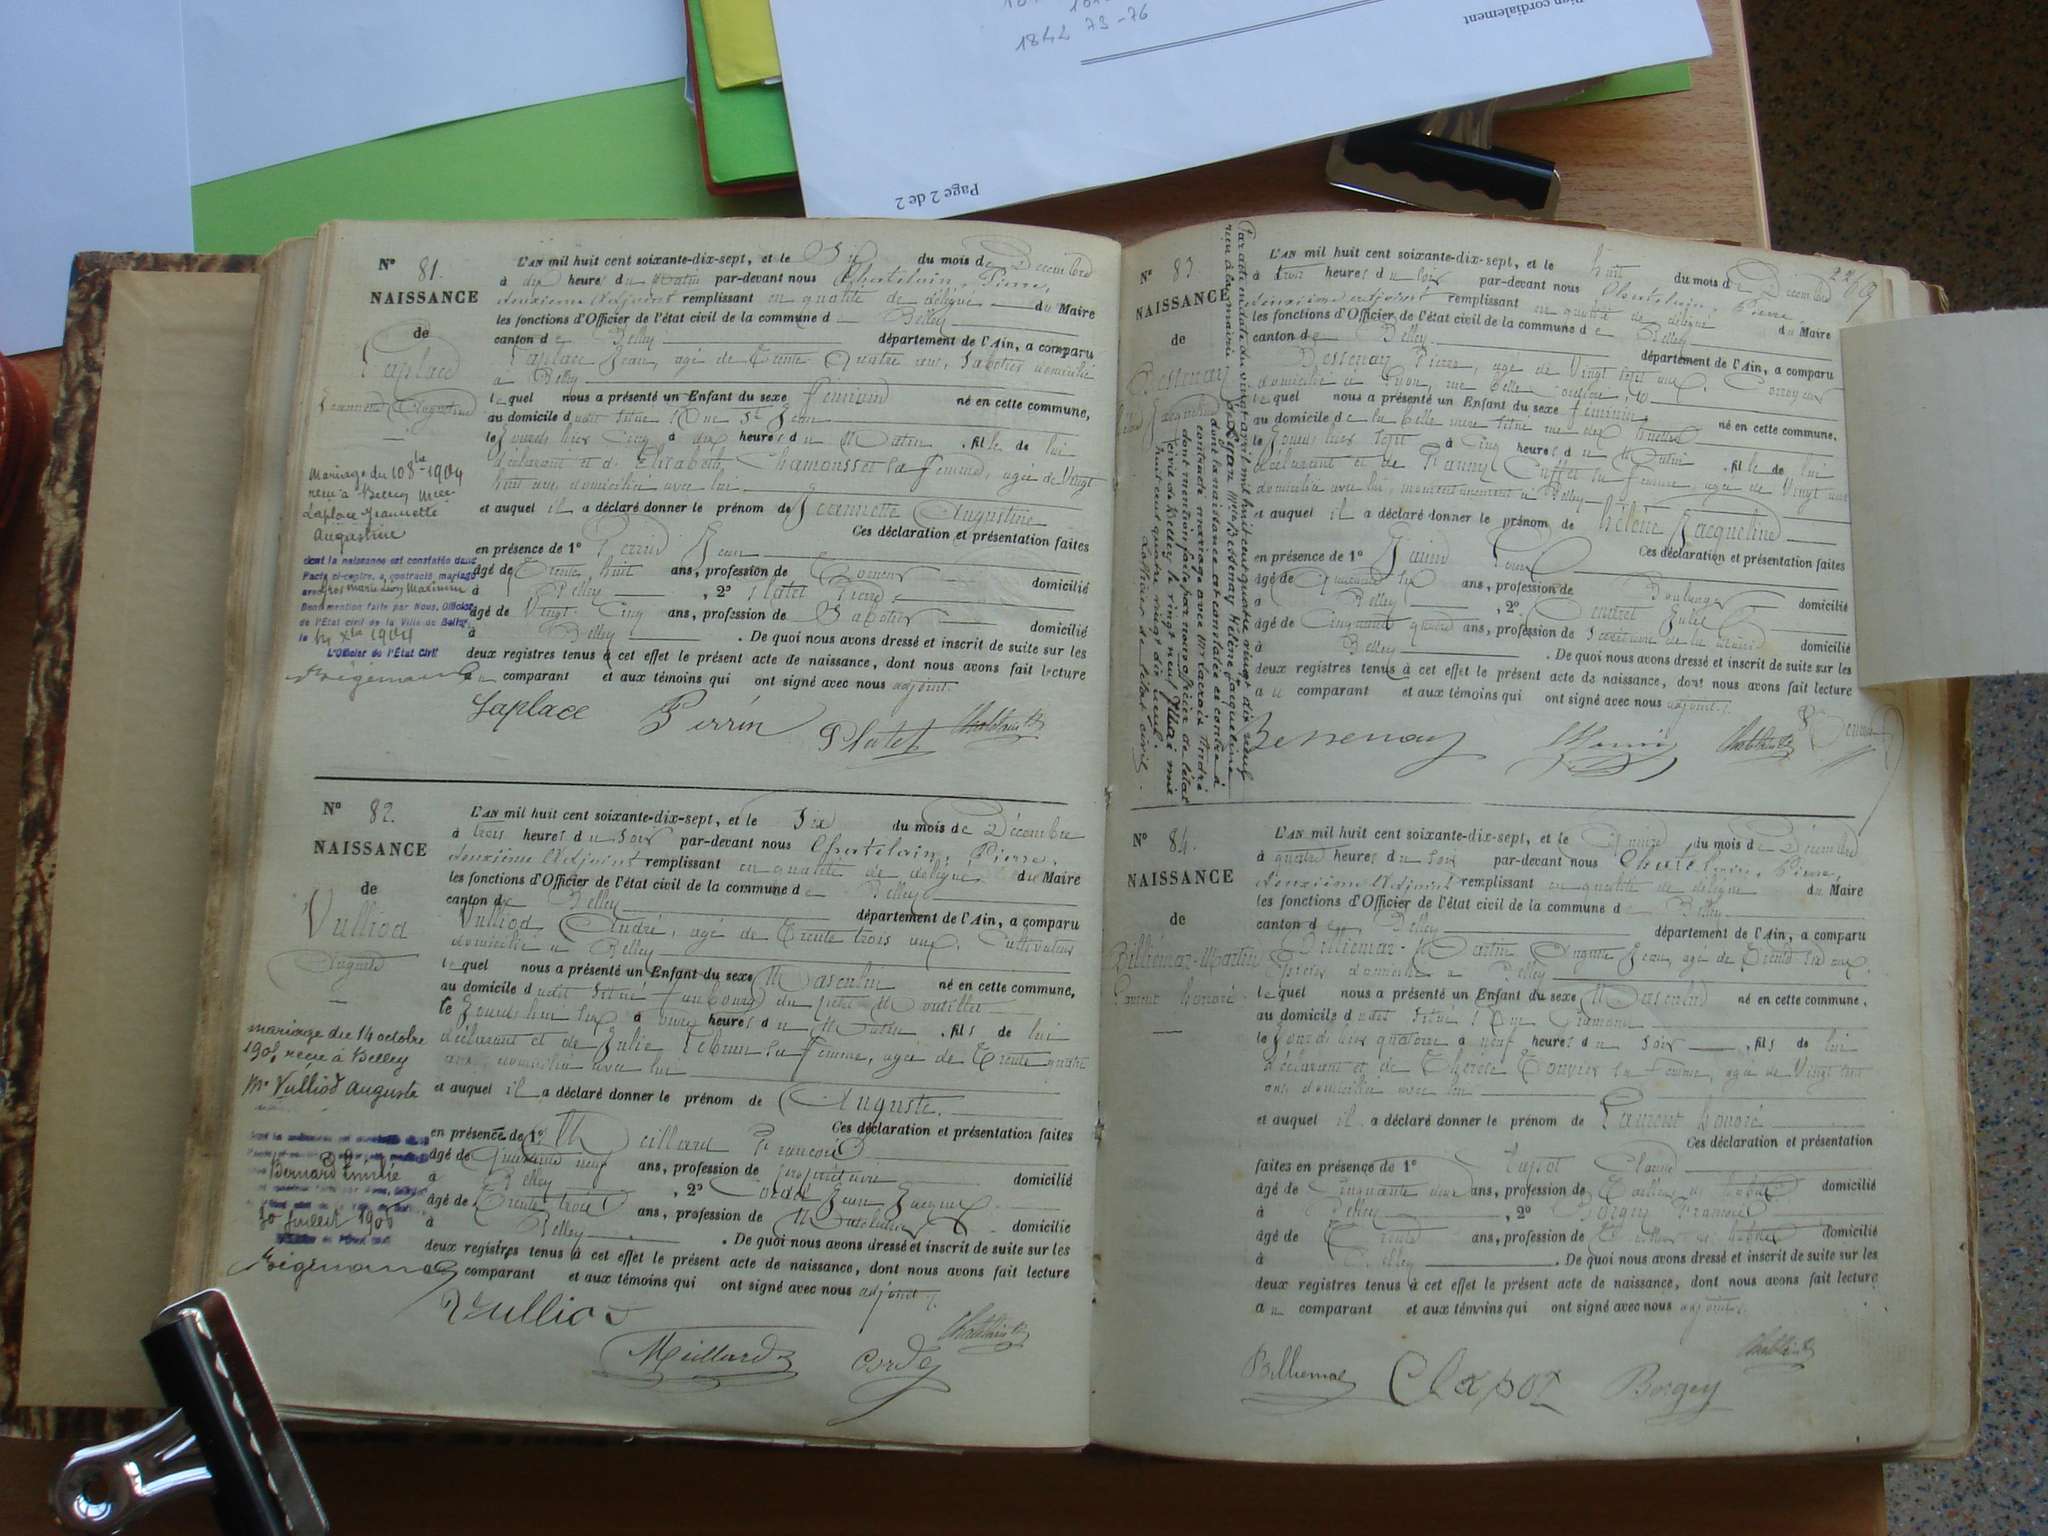 1842 73-76
Bien cordialement
Page 2 de 2
N° 81.
NAISSANCE
de
Laplace
Jeannette Augustine
L'AN mil huit cent soixante-dix-sept, et le Six du mois de Décembre
à dix heures du Matin par-devant nous Chatelain, Pierre,
deuxième Adjoint remplissant en qualité de délégué du Maire
les fonctions d'Officier de l'état civil de la commune de Belley
canton de Belley département de l'Ain, a comparu
Laplace Jean, agé de Trente Quatre ans, Sabotier domicilié
à Belley
lequel nous a présenté un Enfant du sexe féminin né en cette commune,
au domicile dudit situé Rue St Jean
le Jourd'hier Cinq à dix heures du Matin, fille de lui
déclarant et de Elisabeth Chamousset sa femme, agée de Vingt
huit ans, domiciliée avec lui
et auquel il a déclaré donner le prénom de Jeannette Augustine
Ces déclaration et présentation faites
en présence de 1° Perrin Jean
âgé de Trente huit ans, profession de domicilié
à Belley, 2° Platet Pierre
âgé de Vingt Cinq ans, profession de Sabotier domicilié
à Belley. De quoi nous avons dressé et inscrit de suite sur les
deux registres tenus à cet effet le présent acte de naissance, dont nous avons fait lecture
au comparant et aux témoins qui ont signé avec nous adjoint.
Laplace Perrin Platet Chatelain
Mariage du 10 8bre 1904
reçu à Belley Melle
Laplace Jeannette
Augustine
dont la naissance est constatée dans
l'acte ci-contre, a contracté mariage
avec Gros Marie
Dont mention faite par Nous, Officier
de l'Etat civil de la Ville de Belley,
le Xbre 1904
L'Officier de l'État Civil
N° 82.
NAISSANCE
de
Vulliod
Auguste
L'AN mil huit cent soixante-dix-sept, et le Six du mois de Décembre
à trois heures du Soir par-devant nous Chatelain, Pierre,
deuxième Adjoint remplissant en qualité de délégué du Maire
les fonctions d'Officier de l'état civil de la commune de Belley
canton de Belley département de l'Ain, a comparu
Vulliod, André, agé de Trente trois ans, Cultivateur
domicilié à Belley
lequel nous a présenté un Enfant du sexe Masculin né en cette commune,
au domicile dudit situé faubourg du petit
le heures du Matin, fils de lui
déclarant et de Julie Lebrun sa femme, agée de Trente quatre
ans, domiciliée avec lui
et auquel il a déclaré donner le prénom de Auguste.
Ces déclaration et présentation faites
en présence de 1° Meillard François
âgé de Quarante neuf ans, profession de propriétaire domicilié
à Belley, 2° Cordel Jean Jacques
âgé de Trente trois ans, profession de domicilié
à Belley. De quoi nous avons dressé et inscrit de suite sur les
deux registres tenus à cet effet le présent acte de naissance, dont nous avons fait lecture
au comparant et aux témoins qui ont signé avec nous adjoint.
Vulliod
Meillard Chatelain
mariage du 14 octobre
1905 reçu à Belley
Mr Vulliod Auguste
Bernard Emilie
30 Juillet 1906
N° 83.
NAISSANCE
de
Bessenay
Hélène Jacqueline
L'AN mil huit cent soixante-dix-sept, et le huit du mois de Décembre
à trois heures du Soir par-devant nous Chatelain, Pierre,
deuxième adjoint remplissant en qualité de délégué du Maire
les fonctions d'Officier de l'état civil de la commune de Belley
canton de Belley département de l'Ain, a comparu
Bessenay Pierre, agé de Vingt sept ans
domicilié à Lyon, rue Belle
lequel nous a présenté un Enfant du sexe féminin né en cette commune,
au domicile de la belle mère situé rue des
le Jourd'hier sept à Cinq heures du Matin, fille de lui
déclarant et de Fanny Cuffet sa femme, agée de Vingt ans
domiciliée avec lui, momentanément à Belley
et auquel il a déclaré donner le prénom de Hélène Jacqueline
Ces déclaration et présentation faites
en présence de 1°
âgé de Quarante six ans, profession de Boulanger domicilié
à Belley, 2°
âgé de Cinquante quatre ans, profession de Secrétaire de la Mairie domicilié
à Belley. De quoi nous avons dressé et inscrit de suite sur les
deux registres tenus à cet effet le présent acte de naissance, dont nous avons fait lecture
au comparant et aux témoins qui ont signé avec nous adjoint.
Bessenay Chatelain
Par acte en date du vingt avril mil huit cent quatre vingt dix neuf
reçu à la mairie de Lyon Mlle Bessenay Hélène Jacqueline
dont la naissance est constatée ci-contre à
contracté mariage avec Mr Lacroix André
dont mention faite par nous officier de l'état
civil de Belley le vingt neuf mil
huit cent quatre vingt dix neuf.
L'officier de l'état civil.
N° 84.
NAISSANCE
de
Billiemaz-Martin
Laurent honoré
L'AN mil huit cent soixante-dix-sept, et le Quinze du mois de Décembre
à quatre heures du Soir par-devant nous Chatelain, Pierre,
deuxième Adjoint remplissant en qualité de délégué du Maire
les fonctions d'Officier de l'état civil de la commune de Belley
canton de Belley département de l'Ain, a comparu
Billiemaz-Martin Auguste Jean, agé de Trente ans,
domicilié à Belley
lequel nous a présenté un Enfant du sexe Masculin né en cette commune,
au domicile dudit situé Rue
le Jourd'hier quatorze à neuf heures du Soir, fils de lui
déclarant et de Thérèse Convier sa femme, agée de Vingt
ans domiciliée avec lui
et auquel il a déclaré donner le prénom de Laurent honoré.
Ces déclaration et présentation
faites en présence de 1° Clapot Claude
âgé de Cinquante deux ans, profession de Tailleur domicilié
à Belley, 2° Borgey François
âgé de Trente ans, profession de domicilié
à Belley. De quoi nous avons dressé et inscrit de suite sur les
deux registres tenus à cet effet le présent acte de naissance, dont nous avons fait lecture
au comparant et aux témoins qui ont signé avec nous adjoint.
Billiemaz Clapot Borgey Chatelain